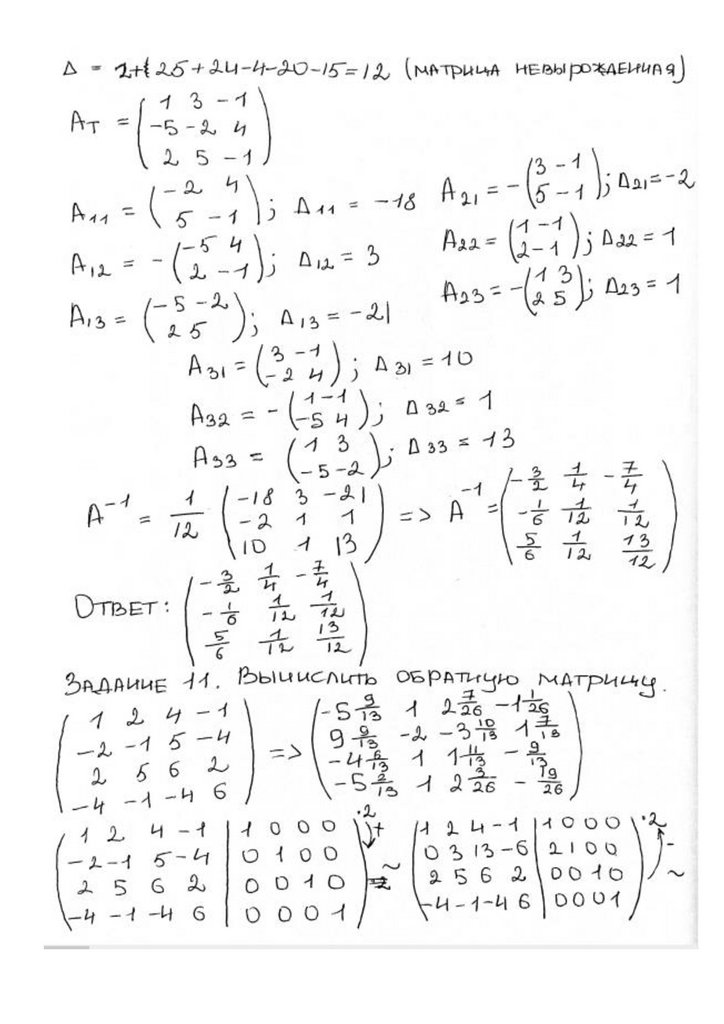 Δ = 2+25+24-4-20-15=12 (матрица невырожденная)
Aт = (1 3 -1
-5 -2 4
2 5 -1)
A11 = (-2 4
5 -1); Δ11 = -18
A21 = -(3 -1
5 -1); Δ21 = -2
A12 = -(-5 4
2 -1); Δ12 = 3
A22 = (1 -1
2 -1); Δ22 = 1
A13 = (-5 -2
2 5); Δ13 = -21
A23 = -(1 3
2 5); Δ23 = 1
A31 = (3 -1
-2 4); Δ31 = 10
A32 = -(1 -1
-5 4); Δ32 = 1
A33 = (1 3
-5 -2); Δ33 = 13
A⁻¹ = 1/12 (-18 3 -21
-2 1 1
10 1 13) => A⁻¹ = (-3/2 1/4 -7/4
-1/6 1/12 1/12
5/6 1/12 13/12)
Ответ: (-3/2 1/4 -7/4
-1/6 1/12 1/12
5/6 1/12 13/12)
Задание 11. Вычислить обратную матрицу.
(1 2 4 -1
-2 -1 5 -4
2 5 6 2
-4 -1 -4 6) => (-5 9/13 1 2 7/26 -1 1/26
9 9/13 -2 -3 10/13 1 7/13
-4 6/13 1 1 11/13 -9/13
-5 2/13 1 2 3/26 -19/26)
(1 2 4 -1 | 1 0 0 0
-2 -1 5 -4 | 0 1 0 0
2 5 6 2 | 0 0 1 0
-4 -1 -4 6 | 0 0 0 1) ·2 + ~
(1 2 4 -1 | 1 0 0 0
0 3 13 -6 | 2 1 0 0
2 5 6 2 | 0 0 1 0
-4 -1 -4 6 | 0 0 0 1) ·2 - ~